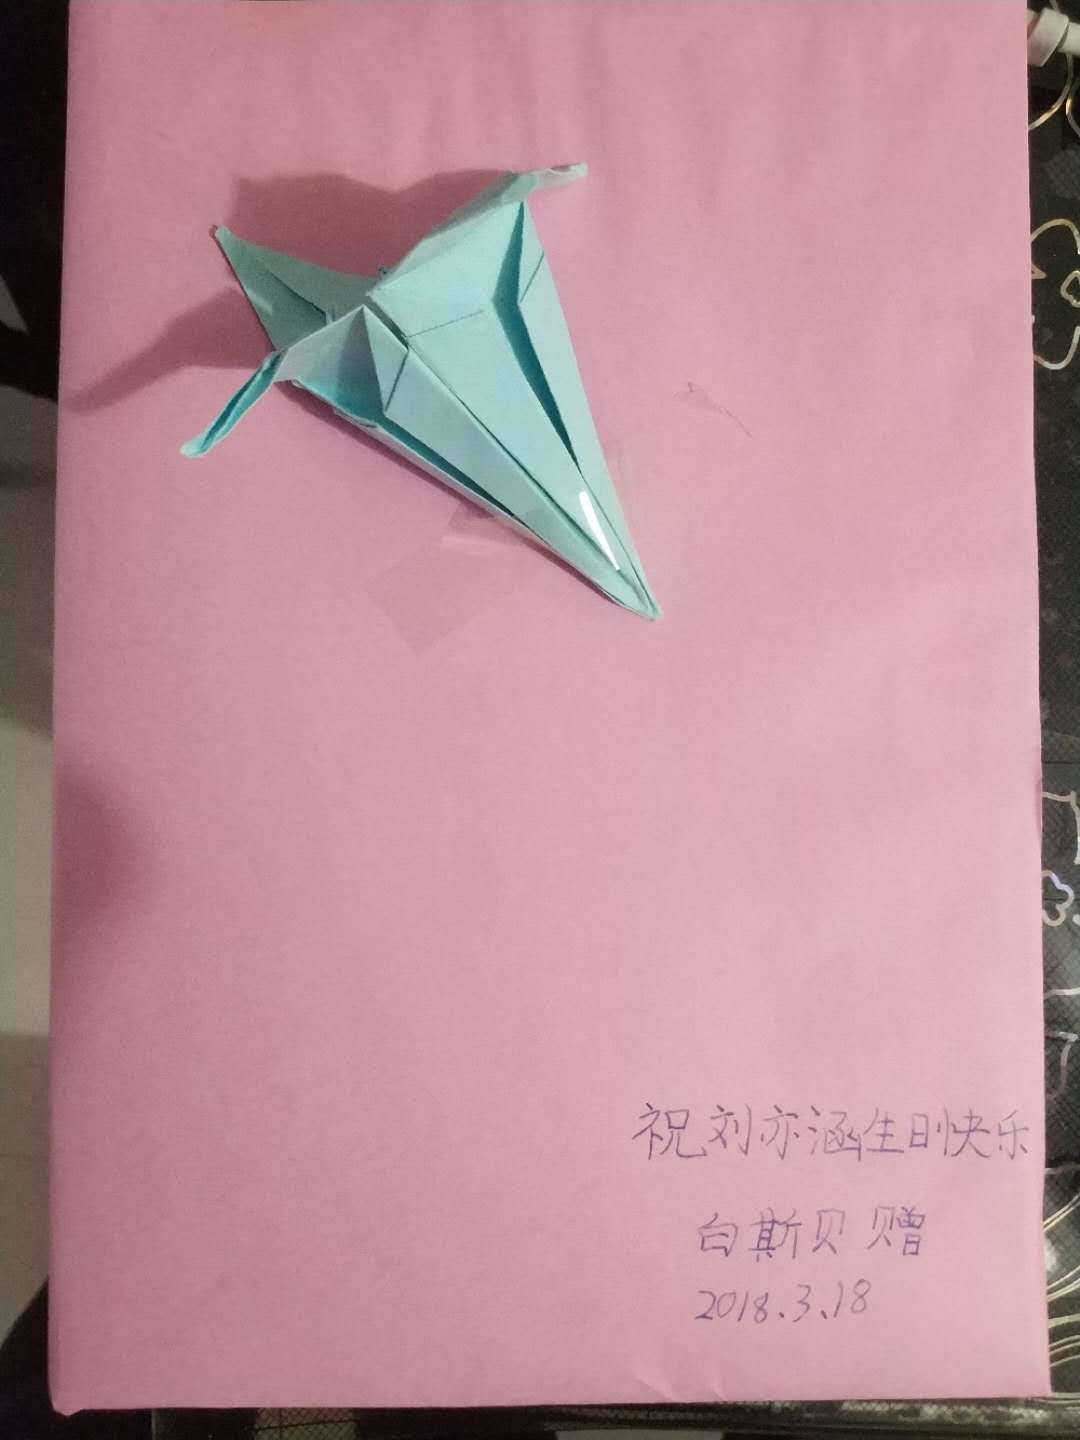 祝刘亦涵生日快乐
白斯贝 赠
2018.3.18